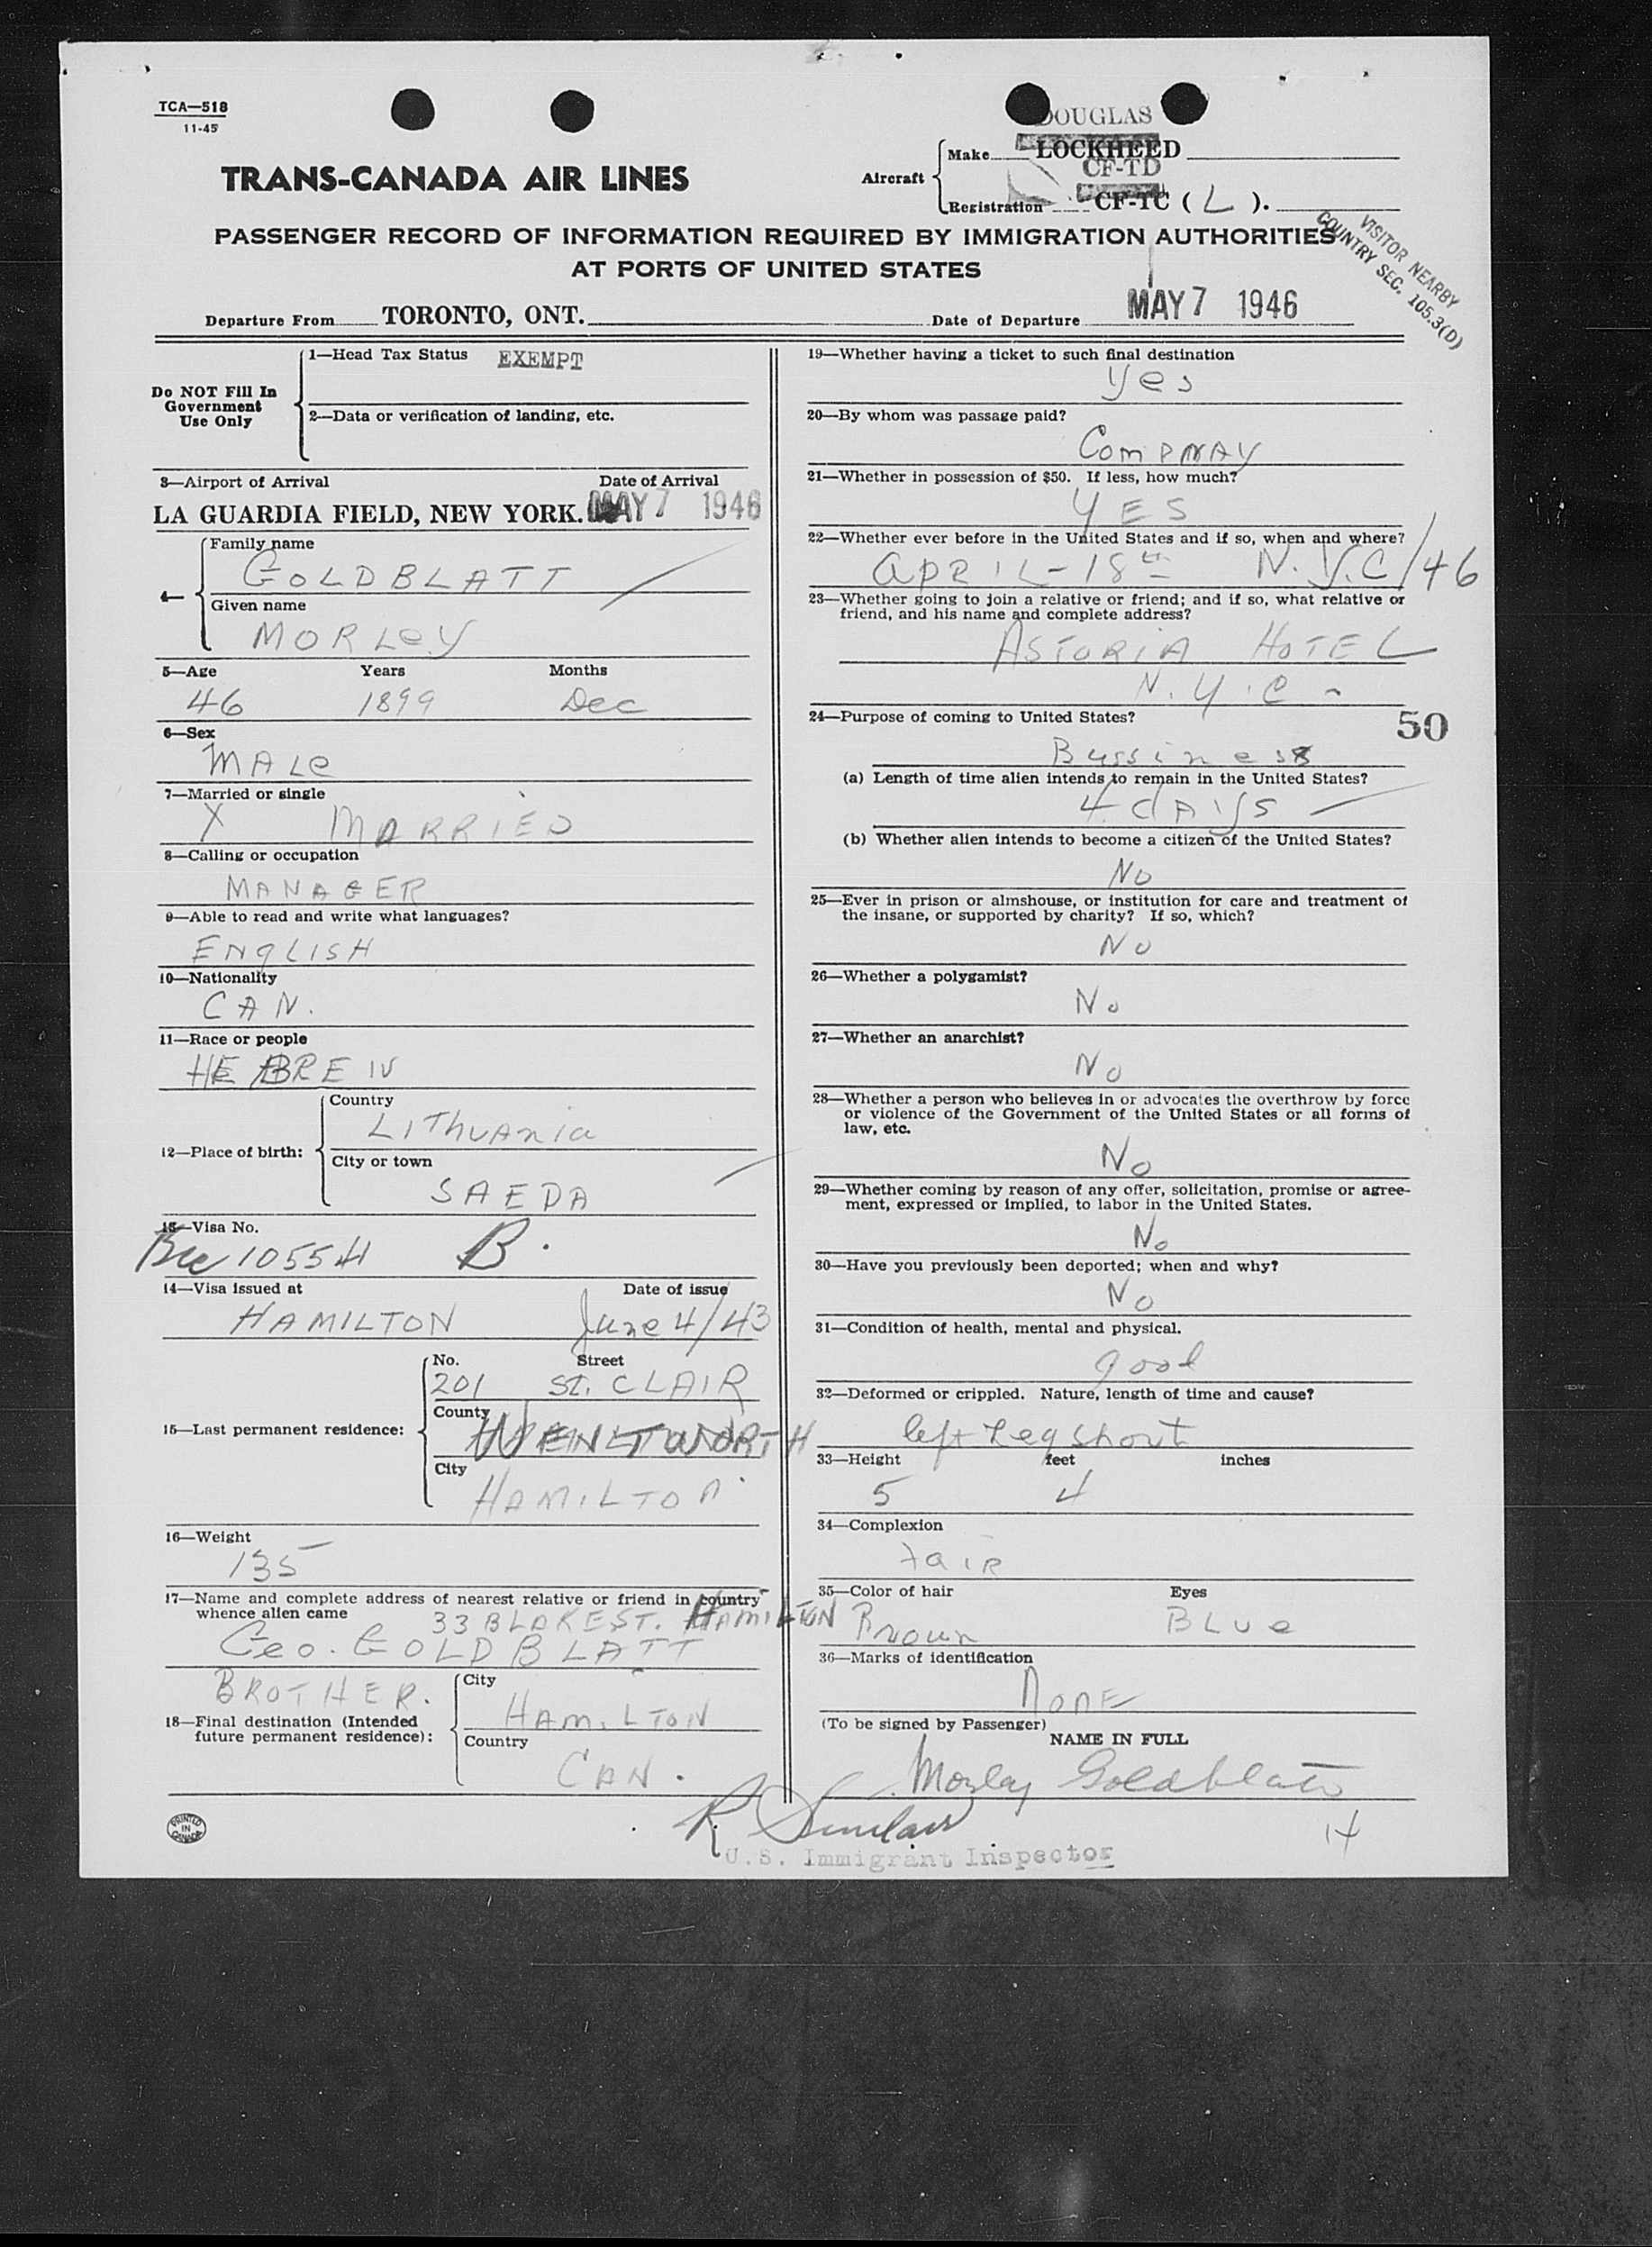 TCA—518
11-45
DOUGLAS
Make LOCKHEED
CF-TD
Aircraft
Registration CF-TC ( L ).
TRANS-CANADA AIR LINES
PASSENGER RECORD OF INFORMATION REQUIRED BY IMMIGRATION AUTHORITIES
AT PORTS OF UNITED STATES
VISITOR NEARBY
COUNTRY SEC. 105.3(D)
Departure From TORONTO, ONT. Date of Departure MAY 7 1946
Do NOT Fill In
Government
Use Only
1—Head Tax Status EXEMPT
2—Data or verification of landing, etc.
3—Airport of Arrival Date of Arrival
LA GUARDIA FIELD, NEW YORK. MAY 7 1946
4—
Family name
GOLDBLATT
Given name
MORLEY
5—Age Years Months
46 1899 Dec
6—Sex
MALe
7—Married or single
X MARRIED
8—Calling or occupation
MANAGER
9—Able to read and write what languages?
ENGLISH
10—Nationality
CAN.
11—Race or people
HEBREW
12—Place of birth:
Country
LIThuAnia
City or town
SAEDA
13—Visa No.
10554 B.
14—Visa issued at Date of issue
HAMILTON June 4/43
15—Last permanent residence:
No. Street
201 ST. CLAIR
County
WENTWORTH
City
HAMILTON
16—Weight
135
17—Name and complete address of nearest relative or friend in country
whence alien came
33 BLAKE ST. HAMILTON
Geo. GOLDBLATT
BROTHER.
18—Final destination (Intended
future permanent residence):
City
HAMILTON
Country
CAN.
19—Whether having a ticket to such final destination
yes
20—By whom was passage paid?
COMPNAY
21—Whether in possession of $50. If less, how much?
YES
22—Whether ever before in the United States and if so, when and where?
APRIL-18th N.Y.C/46
23—Whether going to join a relative or friend; and if so, what relative or
friend, and his name and complete address?
ASTORIA HOTEL
N.Y.C -
24—Purpose of coming to United States?
50
Bussiness
(a) Length of time alien intends to remain in the United States?
4 dAys
(b) Whether alien intends to become a citizen of the United States?
No
25—Ever in prison or almshouse, or institution for care and treatment of
the insane, or supported by charity? If so, which?
No
26—Whether a polygamist?
No
27—Whether an anarchist?
No
28—Whether a person who believes in or advocates the overthrow by force
or violence of the Government of the United States or all forms of
law, etc.
No
29—Whether coming by reason of any offer, solicitation, promise or agree-
ment, expressed or implied, to labor in the United States.
No
30—Have you previously been deported; when and why?
No
31—Condition of health, mental and physical.
good
32—Deformed or crippled. Nature, length of time and cause?
left Leg short
33—Height feet inches
5 4
34—Complexion
faiR
35—Color of hair Eyes
Brown BLue
36—Marks of identification
NonE
(To be signed by Passenger)
NAME IN FULL
Morley Goldblatt
14
R. Sinclair
U.S. Immigrant Inspector
PRINTED
IN
CANADA